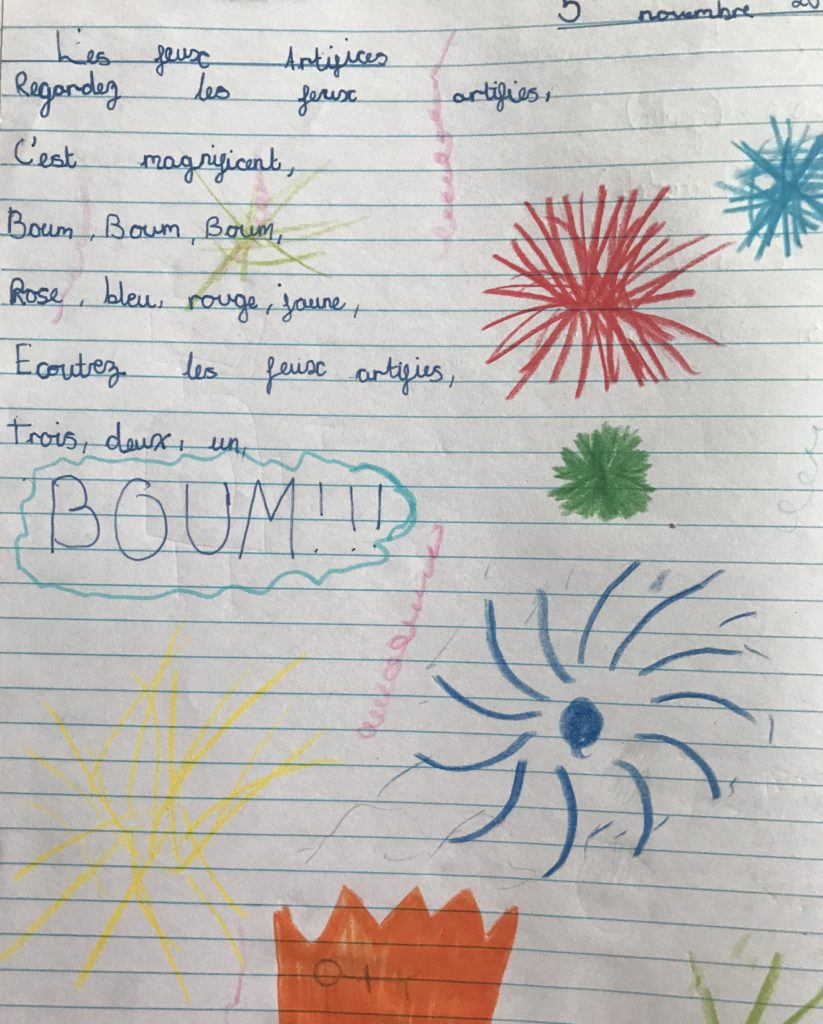 5 noumbre
Les feux Artifices
Regardez les feux artifies,
C'est magnificent,
Boum, Boum, Boum,
Rose, bleu, rouge, jaune,
Ecoutez les feux artifies,
Trois, deux, un,
BOUM!!!